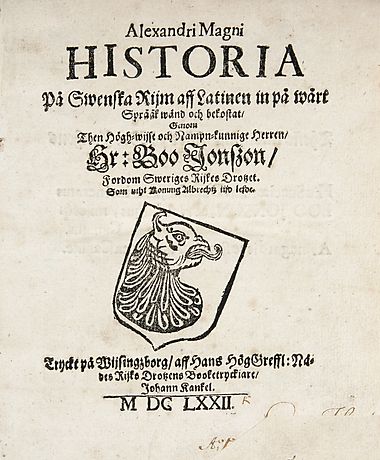 Alexandri Magni
HISTORIA
På Swenska Rijm aff Latinen in på wårt
Språåk wänd och bekostat/
Genom
Then Högh-wijse och Nampn-kunnige Herren/
Hr: Boo Jonszon/
Fordom Sweriges Rijkes Drotzet.
Som uthi Konung Albrechtz tijd lefde.
Tryckt på Wijsingzborg/ aff Hans HögGreffl: Nå-
des Rijks Drotzens Booketryckiare/
Johann Kankel.
M DC LXXII.